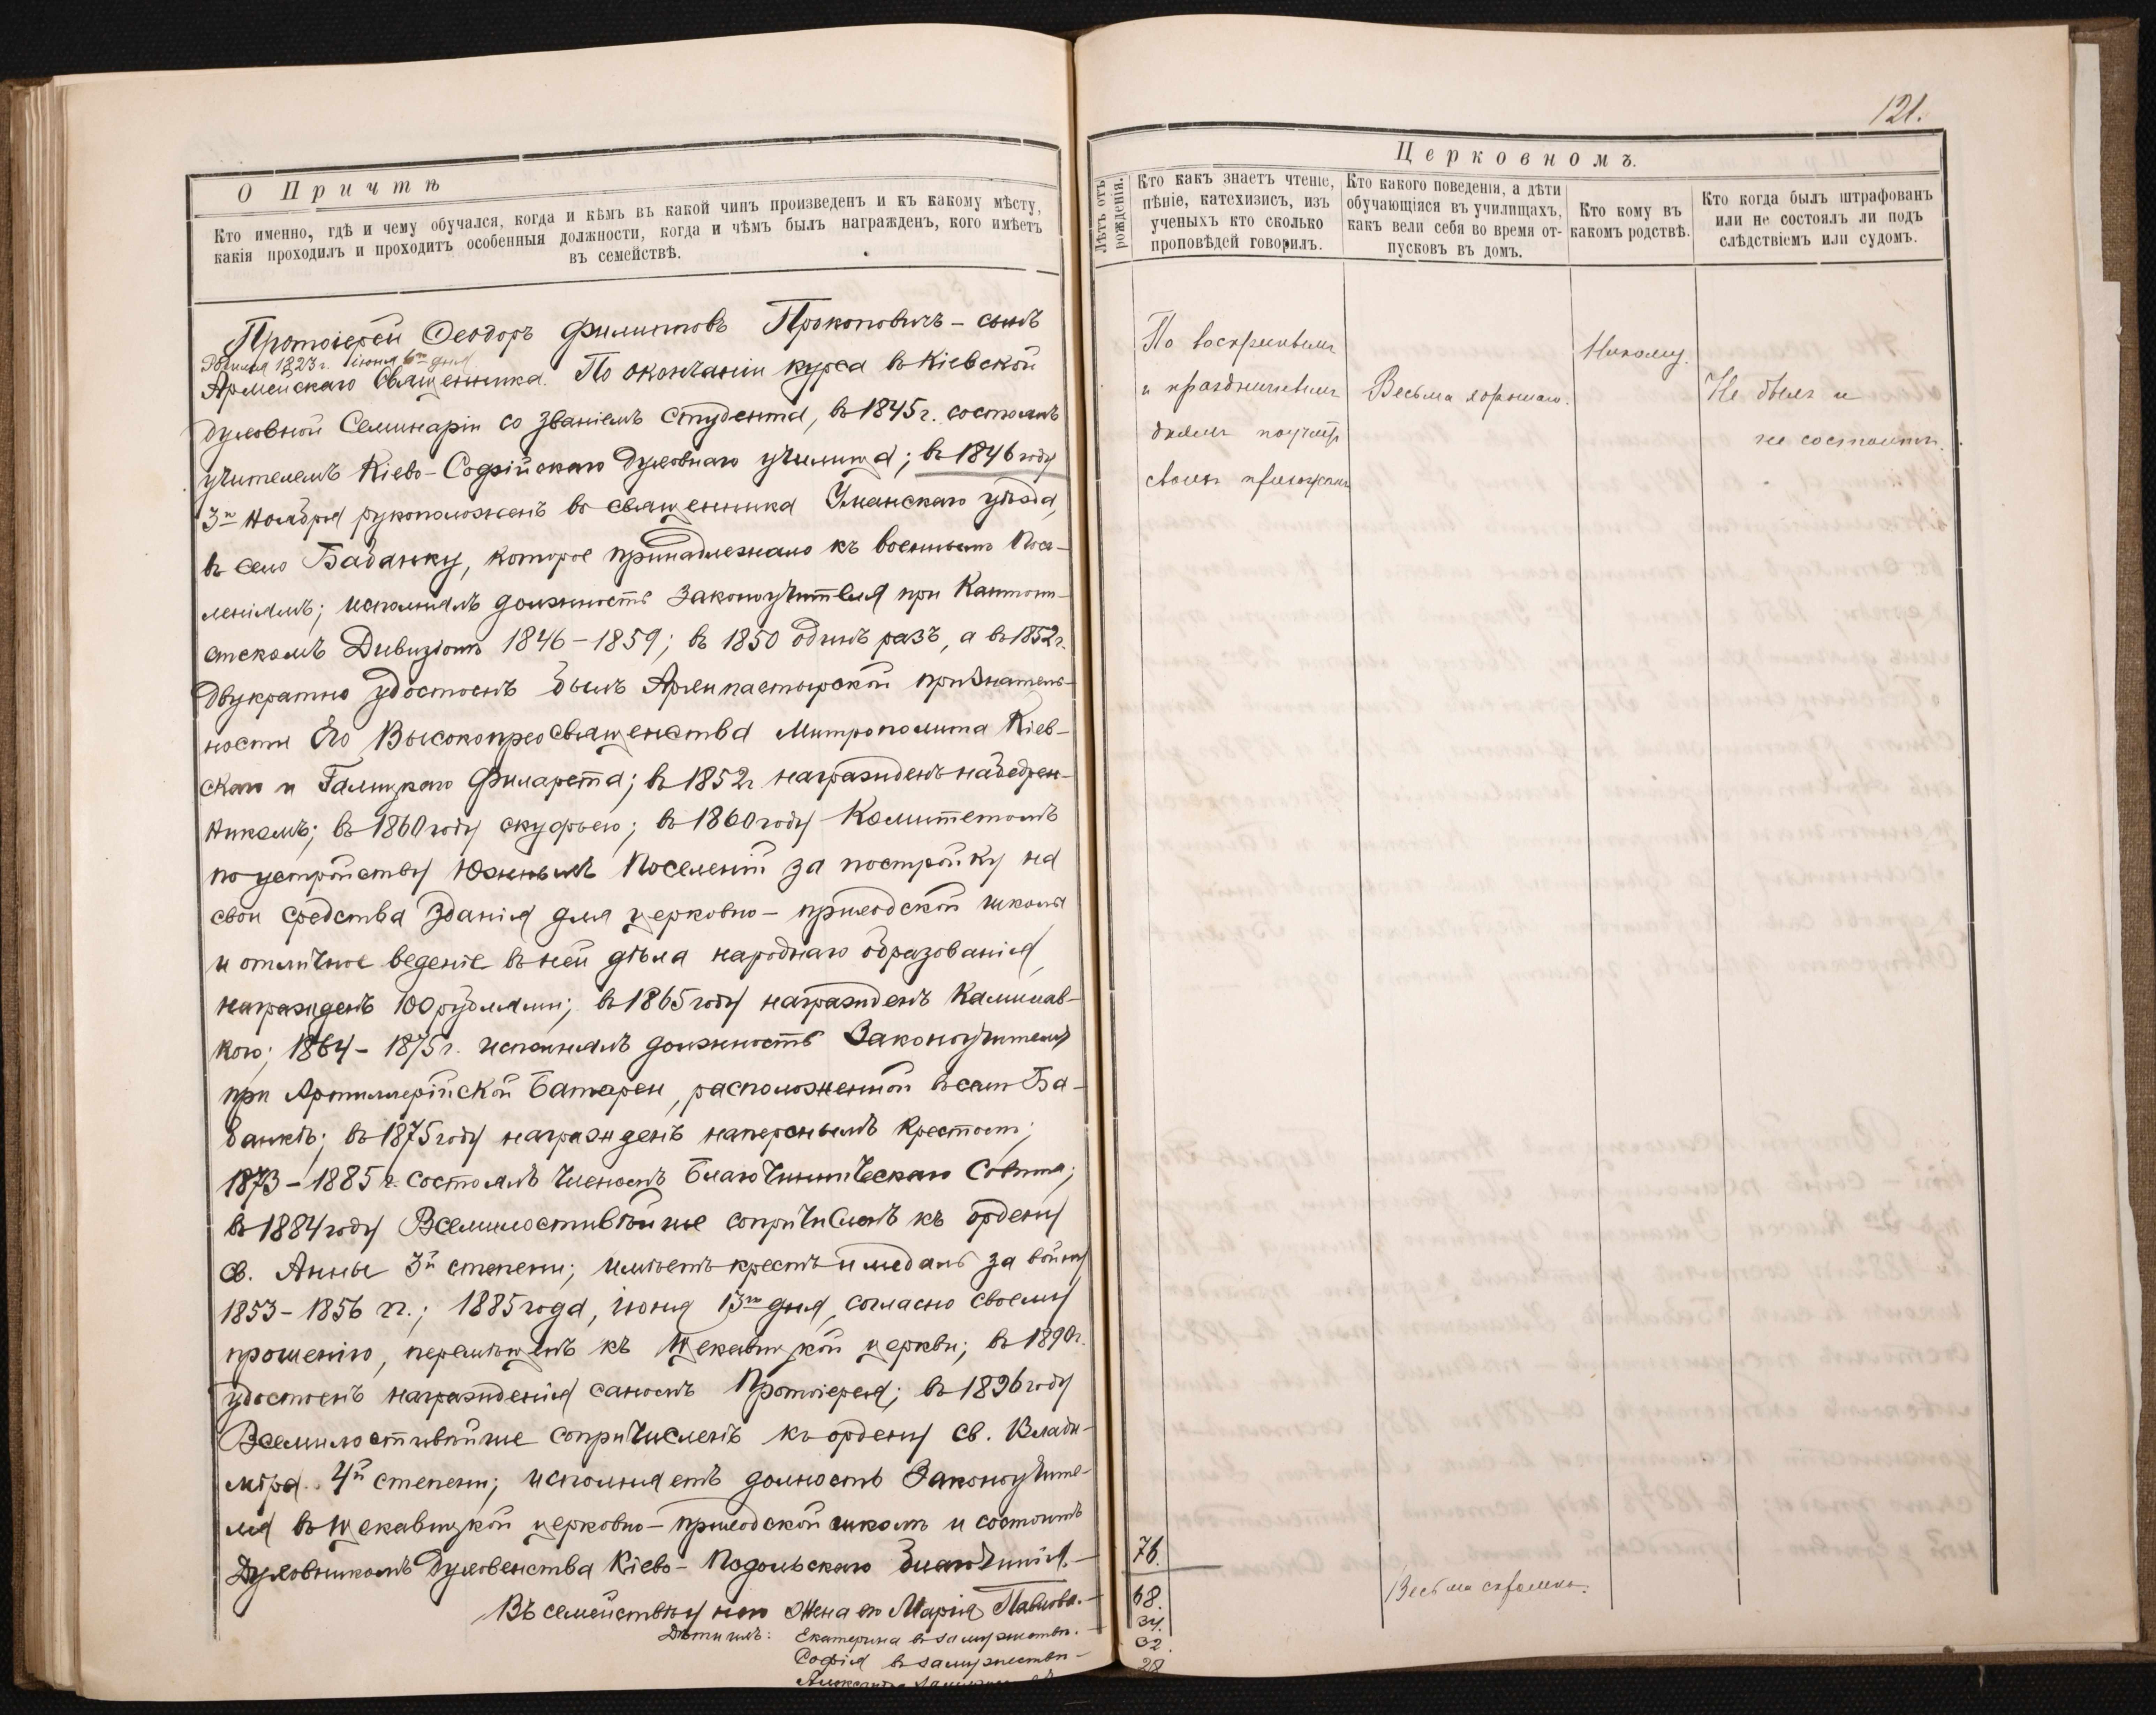 О Причтѣ
Кто именно, гдѣ и чему обучался, когда и кѣмъ въ какой чинъ произведенъ и къ какому мѣсту,
какія проходилъ и проходитъ особенныя должности, когда и чѣмъ былъ награжденъ, кого имѣетъ
въ семействѣ.
Протоіерей Ѳеодоръ Филипповъ Прокоповичъ – сынъ
Родился 1823 г. іюня 6го дня
Армейскаго Священника. По окончаніи курса въ Кіевской
духовной Семинаріи со званіемъ Студента, въ 1845 г. состоялъ
учителемъ Кіево-Софійскаго духовнаго училища; въ 1846 году
3го Ноября рукоположенъ во священника Уманскаго уѣзда,
въ село Бабанку, которое принадлежало къ военнымъ Посе-
леніямъ; исполнялъ должность Законоучителя при Кантони-
стскомъ Дивизіонѣ 1846–1859; въ 1850 одинъ разъ, а въ 1852 г.
двукратно удостоенъ былъ Архипастырской признатель-
ности Его Высокопреосвященства Митрополита Кіев-
скаго и Галицкаго Филарета; въ 1852 г. награжденъ набедрен-
никомъ; въ 1860 году скуфьею; въ 1860 году Комитетомъ
по устройству Южныхъ Поселеній за постройку на
свои средства зданія для церковно-приходской школы
и отличное веденіе въ ней дѣла народнаго образованія,
награжденъ 100 рублями; въ 1865 году награжденъ Камилав-
кою; 1864–1875 г. исполнялъ должность Законоучителя
при Артиллерійской Батареи, расположенной въ селѣ Ба-
банкѣ; въ 1875 году награжденъ наперснымъ Крестомъ;
1873–1885 г. состоялъ членомъ Благочинническаго Совѣта;
въ 1884 году Всемилостивѣйше сопричисленъ къ ордену
св. Анны 3й степени; имѣетъ крестъ и медаль за войну
1853–1856 гг.; 1885 года, іюня 13го дня, согласно своему
прошенію, перемѣщенъ къ Щекавицкой церкви; въ 1890 г.
удостоенъ награжденія саномъ Протоіерея; въ 1896 году
Всемилостивѣйше сопричисленъ къ ордену Св. Влади-
міра 4й степени; исполняетъ должность Законоучите-
ля въ Щекавицкой церковно-приходской школѣ и состоитъ
Духовникомъ Духовенства Кіево-Подольскаго благочинія.–
Въ семействѣ у него Жена его Марія Павлова.–
Дѣти ихъ: Екатерина въ замужествѣ.–
Софія въ замужествѣ–
Александра
121.
Церковномъ.
Лѣтъ отъ
рожденія.
Кто какъ знаетъ чтеніе,
пѣніе, катехизисъ, изъ
ученыхъ кто сколько
проповѣдей говорилъ.
Кто какого поведенія, а дѣти
обучающіяся въ училищахъ,
какъ вели себя во время от-
пусковъ въ домъ.
Кто кому въ
какомъ родствѣ.
Кто когда былъ штрафованъ
или не состоялъ ли подъ
слѣдствіемъ или судомъ.
По воскреснымъ
и праздничнымъ
днямъ поучаетъ
своихъ прихожанъ
Весьма хорошаго.
Никому.
Не былъ и
не состоитъ.
76.
68.
Весьма скромна.
34.
32.
28